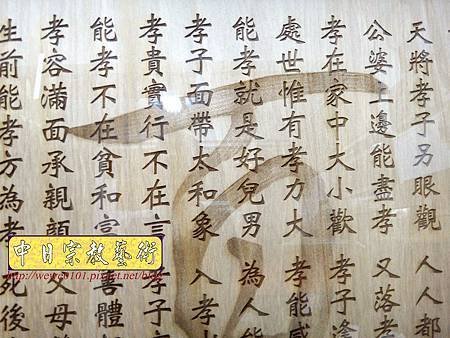 天將孝子另眼觀 人人都
公婆上邊能盡孝 又落孝
孝在家中大小歡 孝子逢
處世惟有孝力大 孝能感
能孝就是好兒男 為人能
孝子面帶太和象 入孝
孝貴實行不在言 孝子
能孝不在貧和富 善體
孝容滿面承親顏 父母
生前能孝方為孝 死後
中日宗教藝術